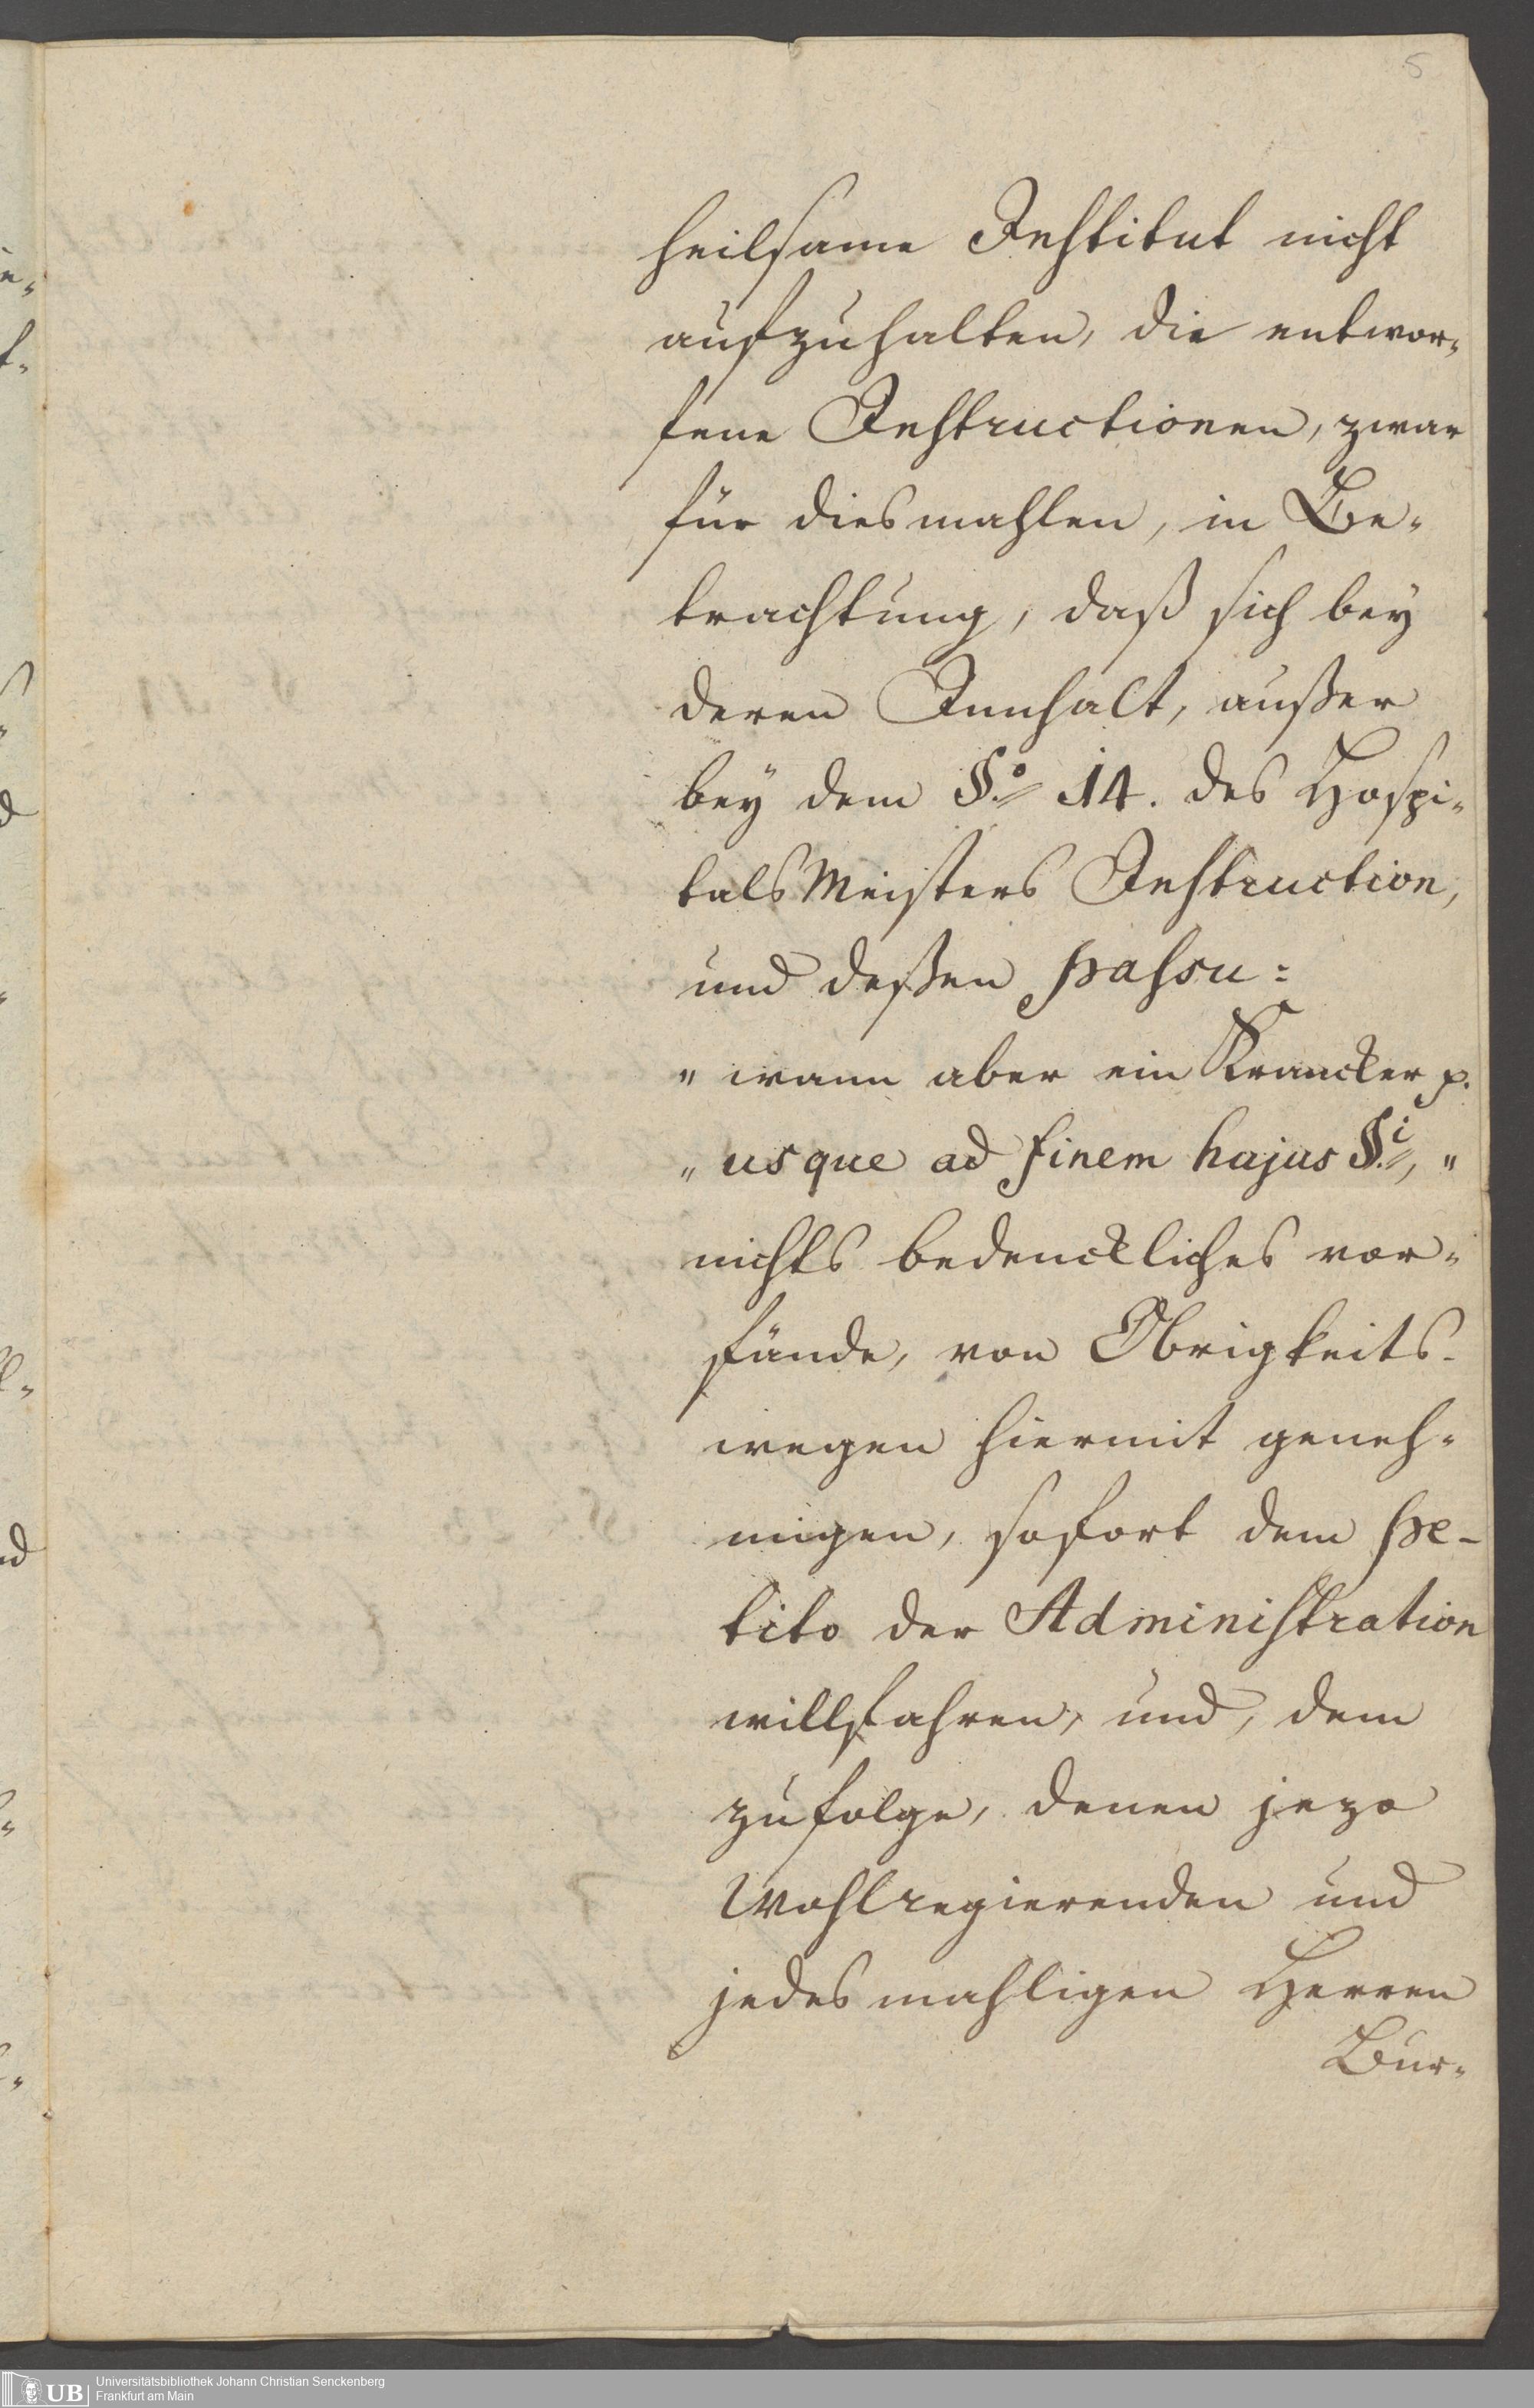 5
heilsame Institut nicht
aufzuhalten, die entwor-
fene Instructionen, zwar
für diesmahlen, in Be-
trachtung, daß sich bey
deren Innhalt, außer
bey dem §.o 14. des Hospi-
talsMeisters Instruction,
und deßen passu:
" wann aber ein Krancker p.
" usque ad finem hujus §.i, "
nichts bedenckliches vor-
fände, von Obrigkeits-
wegen hiermit geneh-
migen, sofort dem pe-
tito der Administration
willfahren, und, dem
zufolge, denen jezo
Wohlregierenden und
jedesmahligen Herren
Bur-
UB
Universitätsbibliothek Johann Christian Senckenberg
Frankfurt am Main